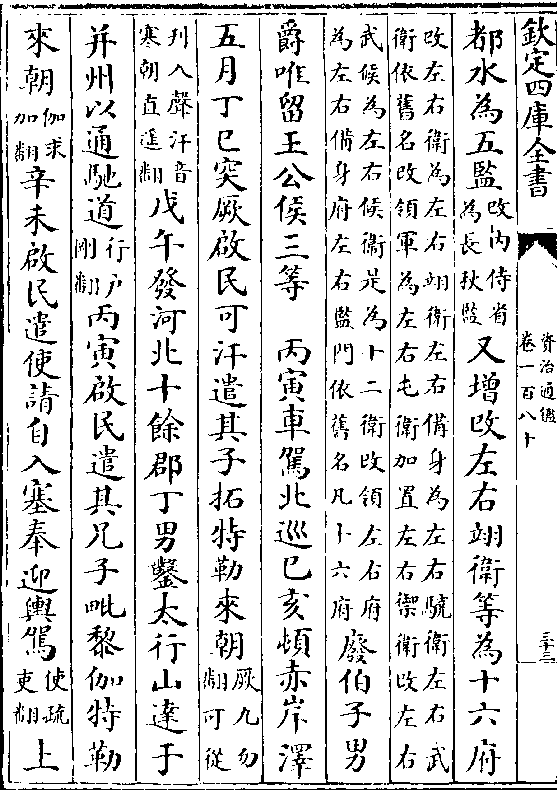 欽定四庫全書
資治通鑑
卷一百八十
三十三
都水為五監改内侍省為長秋監又增改左右翊衛等為十六府
改左右衛為左右翊衛左右備身為左右驍衛左右武
衛依舊名改領軍為左右屯衛加置左右禦衛改左右
武候為左右候衛是為十二衛改領左右府
為左右備身府左右監門依舊名凡十六府廢伯子男
爵唯留王公侯三等　丙寅車駕北巡己亥頓赤岸澤
五月丁巳突厥啟民可汗遣其子拓特勒來朝厥九勿翻可從
刋入聲汗音寒朝直遥翻戊午發河北十餘郡丁男鑿太行山達于
并州以通馳道行户剛翻丙寅啟民遣其兄子毗黎伽特勒
來朝伽求加翻辛未啟民遣使請自入塞奉迎輿駕使疏吏翻上